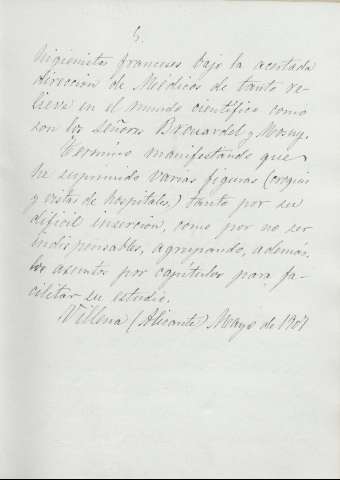 5.
higienistas franceses bajo la acertada
dirección de Médicos de tanto re-
lieve en el mundo científico como
son los señores Brouardel y Mosny.
Termino manifestando que
he suprimido varias figuras (croquis
y vistas de hospitales) tanto por su
difícil inserción, como por no ser
indispensables, agrupando, además,
los asuntos por capítulos para fa-
cilitar su estudio.
Villena (Alicante) Mayo de 1907